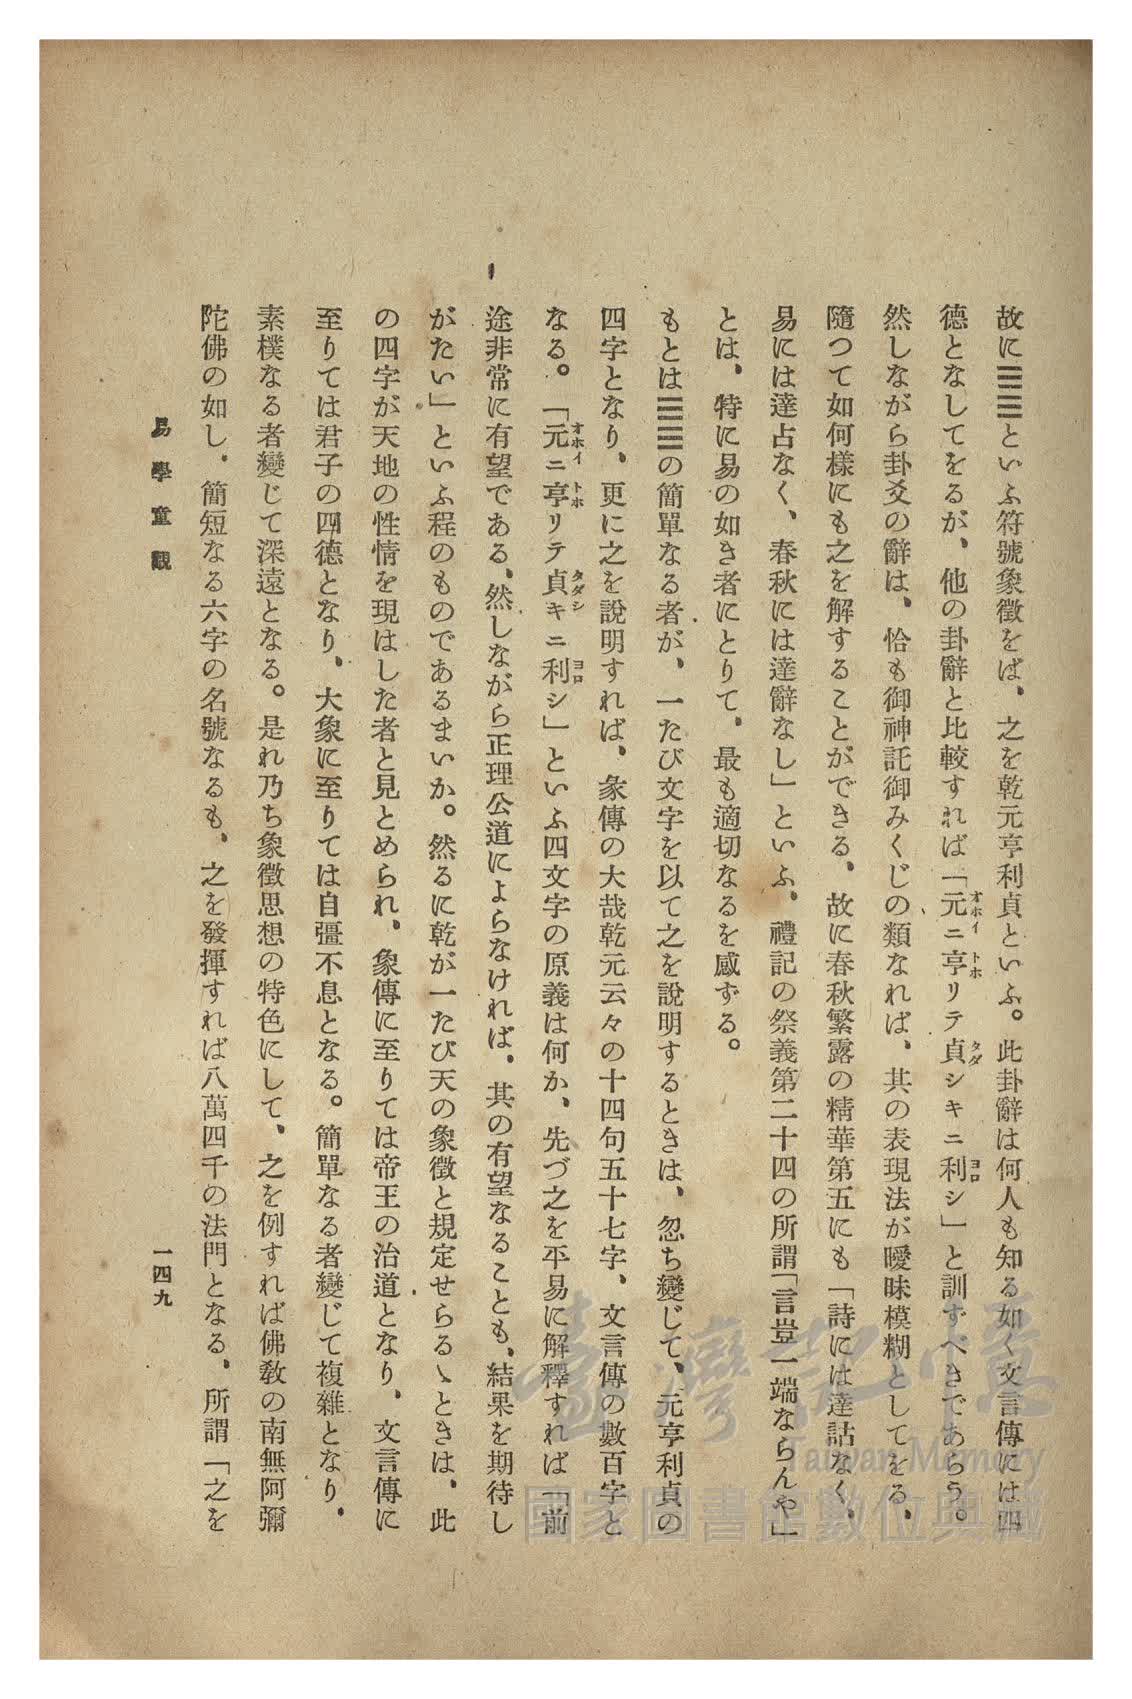 故に☰☰といふ符號象徵をば、之を乾元亨利貞といふ。此卦辭は何人も知る如く文言傳には四
德となしてをるが、他の卦辭と比較すれば「元ニ亨リテ貞シキニ利シ」と訓ずべきであらう。
然しながら卦爻の辭は、恰も御神託御みくじの類なれば、其の表現法が曖昧模糊としてをる、
隨つて如何樣にも之を解することができる、故に春秋繁露の精華第五にも「詩には達詁なく、
易には達占なく、春秋には達辭なし」といふ、禮記の祭義第二十四の所謂「言豈一端ならんや」
とは、特に易の如き者にとりて、最も適切なるを感ずる。
もとは☰☰の簡單なる者が、一たび文字を以て之を說明するときは、忽ち變じて、元亨利貞の
四字となり、更に之を說明すれば、彖傳の大哉乾元云々の十四句五十七字、文言傳の數百字と
なる。「元ニ亨リテ貞キニ利シ」といふ四文字の原義は何か、先づ之を平易に解釋すれば「前
途非常に有望である、然しながら正理公道によらなければ、其の有望なることも、結果を期待し
がたい」といふ程のものであるまいか。然るに乾が一たび天の象徵と規定せらるゝときは、此
の四字が天地の性情を現はした者と見とめられ、彖傳に至りては帝王の治道となり、文言傳に
至りては君子の四德となり、大象に至りては自彊不息となる。簡單なる者變じて複雜となり、
素樸なる者變じて深遠となる。是れ乃ち象徵思想の特色にして、之を例すれば佛敎の南無阿彌
陀佛の如し、簡短なる六字の名號なるも、之を發揮すれば八萬四千の法門となる、所謂「之を
易學童觀
一四九
臺灣記憶
Taiwan Memory
國家圖書館數位典藏